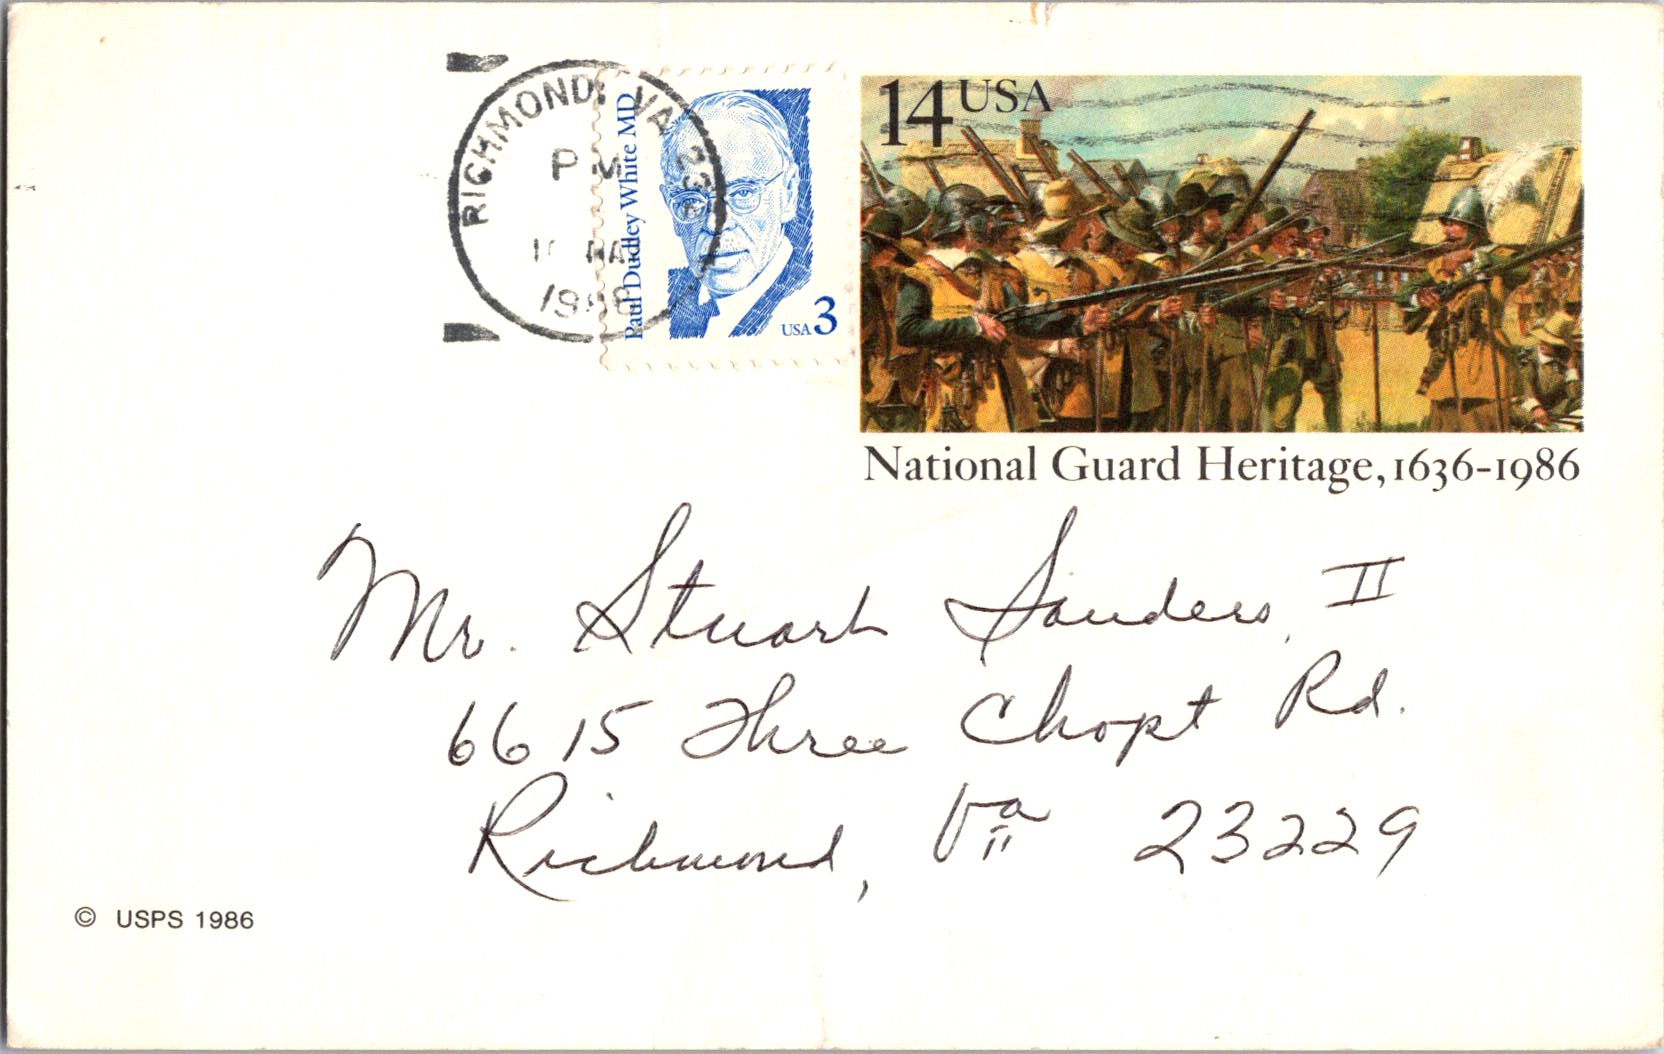 RICHMOND, VA
PM
1988
Paul Dudley White MD
USA 3
14 USA
National Guard Heritage, 1636-1986
Mr. Stuart Sanders, II
6615 Three Chopt Rd.
Richmond, Va 23229
© USPS 1986